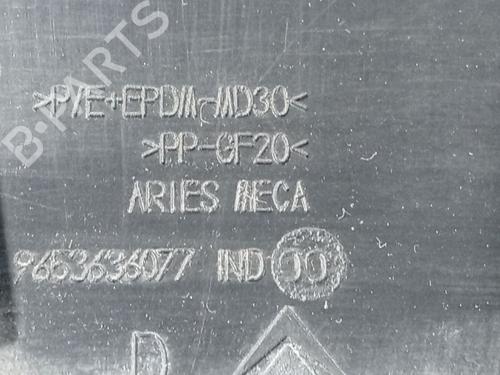 B-PARTS
>P/E+EPDM-MD30<
>PP-GF20<
ARIES MECA
9653636077 IND 00